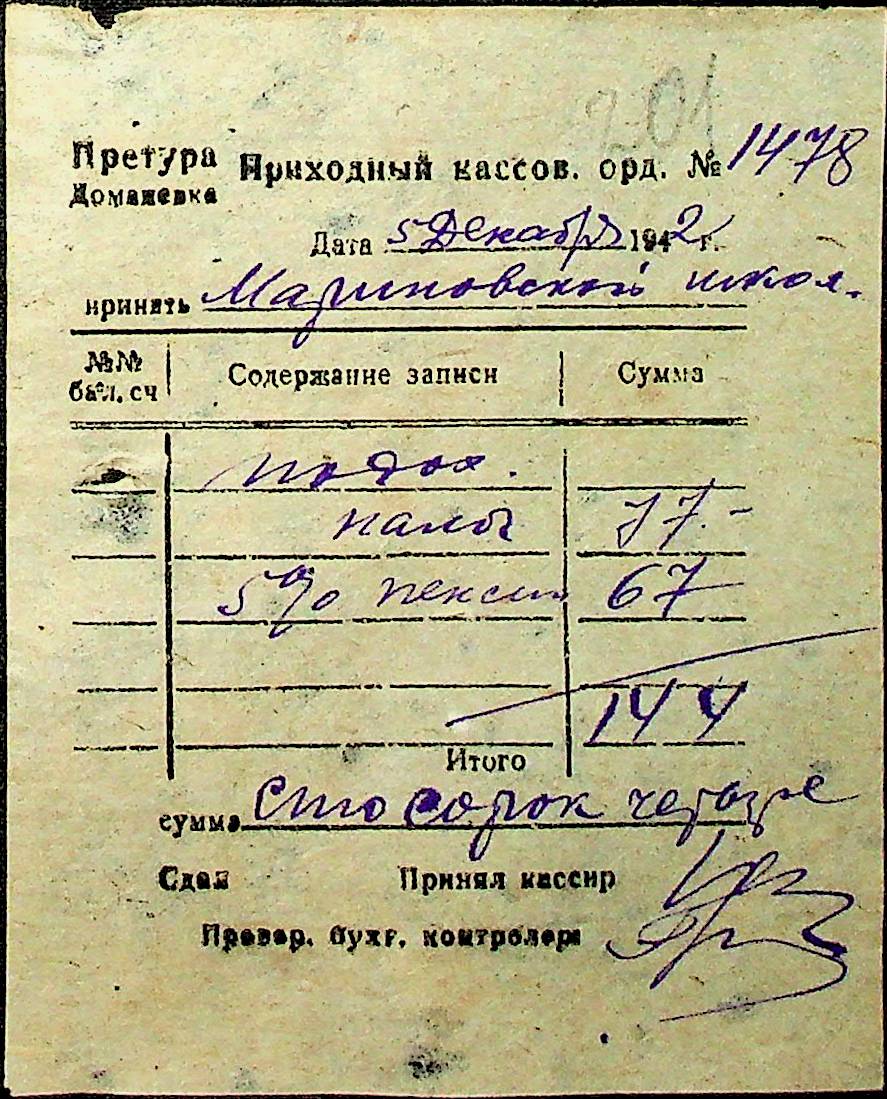 201
Претура Приходный кассов. орд. № 1478
Доманевка
Дата 5 Декабря 1942 г.
принять Мариновской школ.
№№ бал. сч Содержание записи Сумма
подох.
налог 77.-
5% пенсии 67
144
Итого
сумма Сто сорок четыре
Сдал Принял кассир
Провер. бухг. контролер